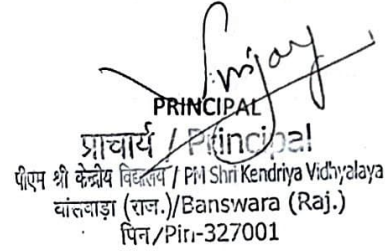 Srijay
PRINCIPAL
प्राचार्य / Principal
पीएम श्री केन्द्रीय विद्यालय / PM Shri Kendriya Vidhyalaya
बांसवाड़ा (राज.)/Banswara (Raj.)
पिन/Pin-327001